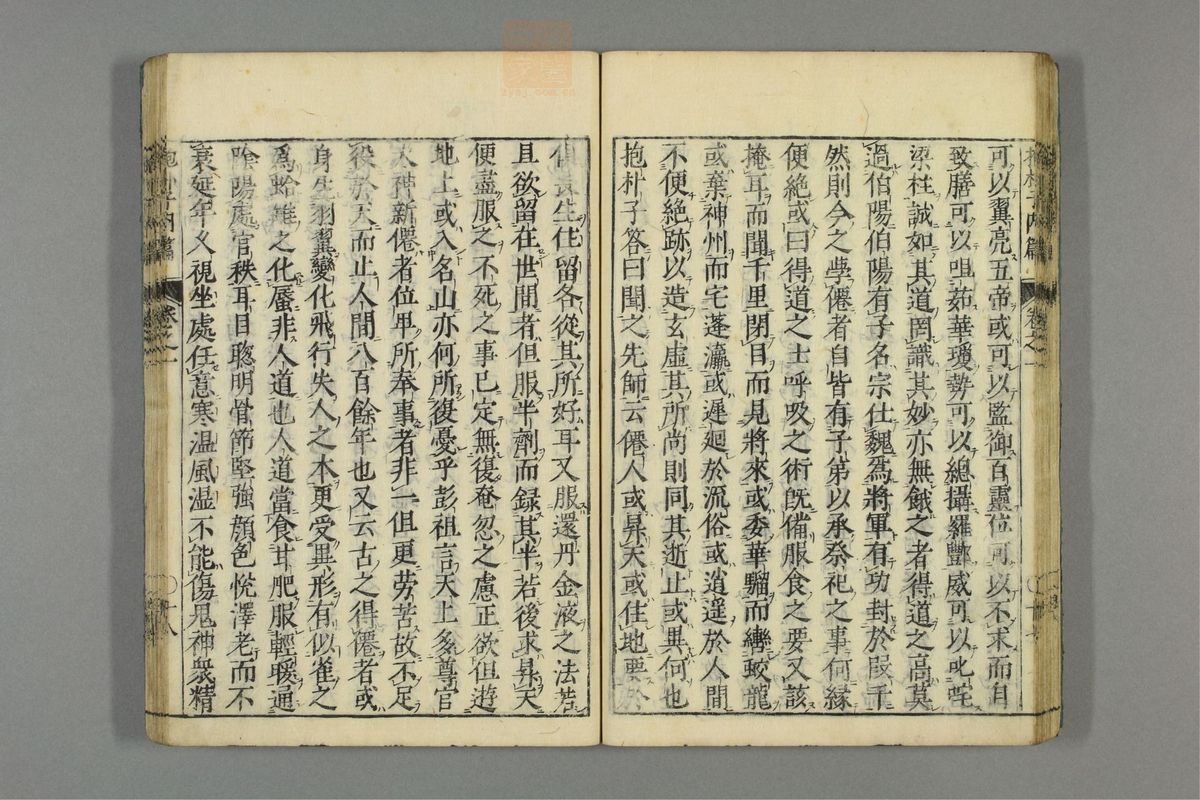 可以翼亮五帝或可以監御百靈位可以不求而自
致膳可以咀茹華璚勢可以總攝羅酆威可以叱咤
梁柱誠如其道罔識其妙亦無餓之者得道之高莫
過伯陽伯陽有子名宗仕魏爲將軍有功封於叚千
然則今之學僊者自皆有子弟以承祭祀之事何緣
便絶或曰得道之士呼吸之術既備服食之要又該
掩耳而聞千里閉目而見將來或委華駵而轡蛟龍
或棄神州而宅蓬瀛或遲迴於流俗或逍遥於人間
不便絶跡以造玄虛其所尚則同其逝止或異何也
抱朴子答曰聞之先師云僊人或昇天或住地要於
俱長生住留各從其所好耳又服還丹金液之法若
且欲留在世間者但服半劑而録其半若後求昇天
便盡服之不死之事已定無復奄忽之慮正欲但遊
地上或入名山亦何所復憂乎彭祖言天上多尊官
大神新僊者位卑所奉事者非一但更勞苦故不足
役於天而止人間八百餘年也又云古之得僊者或
身生羽翼變化飛行失人之本更受異形有似雀之
爲蛤雉之化蜃非人道也人道當食甘肥服輕暖通
陰陽處官秩耳目聰明骨節堅強顔色悦澤老而不
衰延年久視坐處任意寒温風湿不能傷鬼神衆精
抱朴子内篇 卷之一